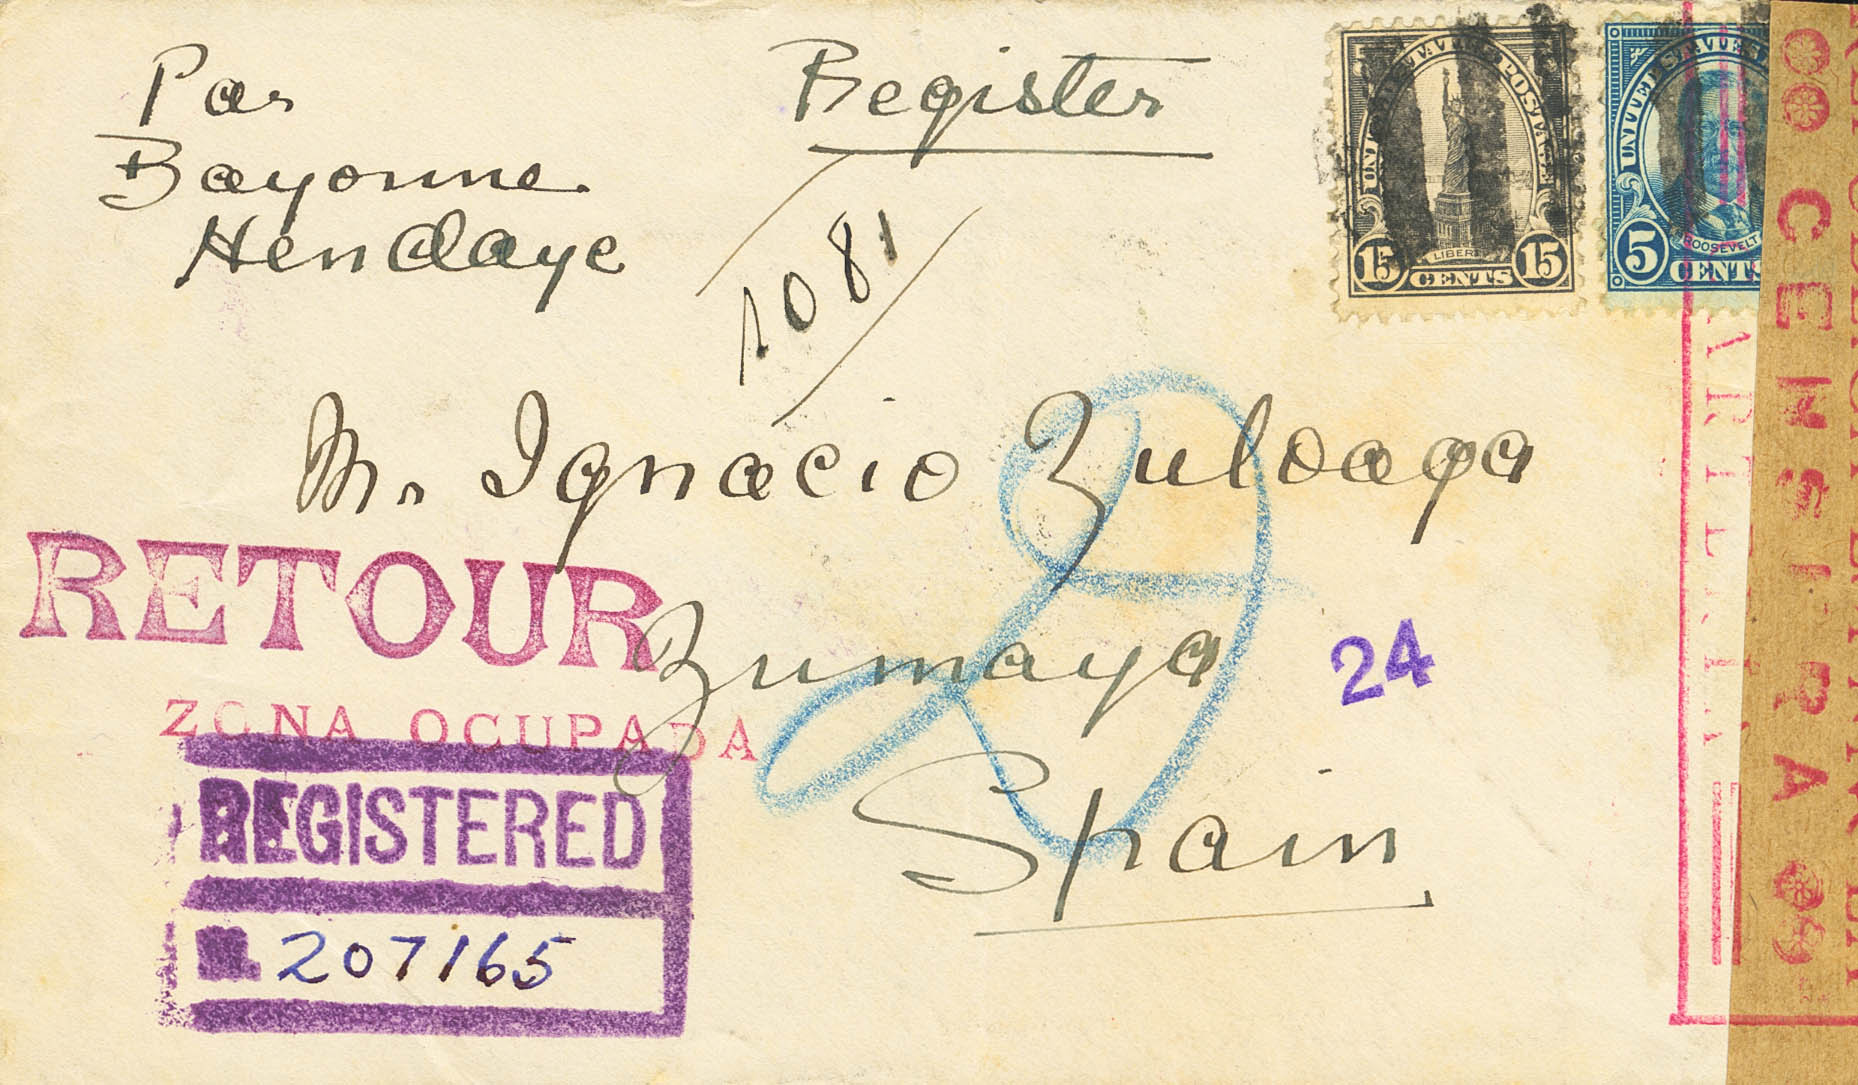 Par
Bayonne
Hendaye
Register
1081
UNITED STATES POSTAGE
LIBERTY
15 CENTS 15
UNITED STATES
ROOSEVELT
5 CENTS
Mr. Ignacio Zuloaga
Zumaya
Spain
RETOUR
ZONA OCUPADA
24
REGISTERED
207165
CENSURA
ARTILLERIA